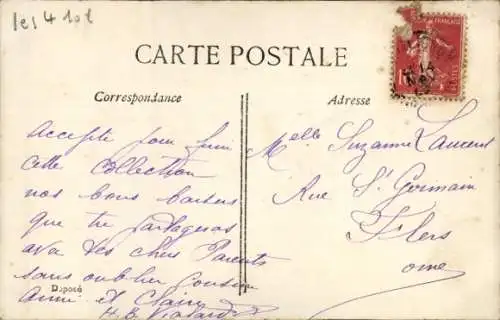 CARTE POSTALE
Correspondance
Adresse
Accepte pour finir
cette collection
nos bons baisers
que tu partageras
avec tes chers Parents
sans oublier cousin
et Claire
H. B.
Déposé
Melle Suzanne Laurent
Rue St Germain
Flers
orne